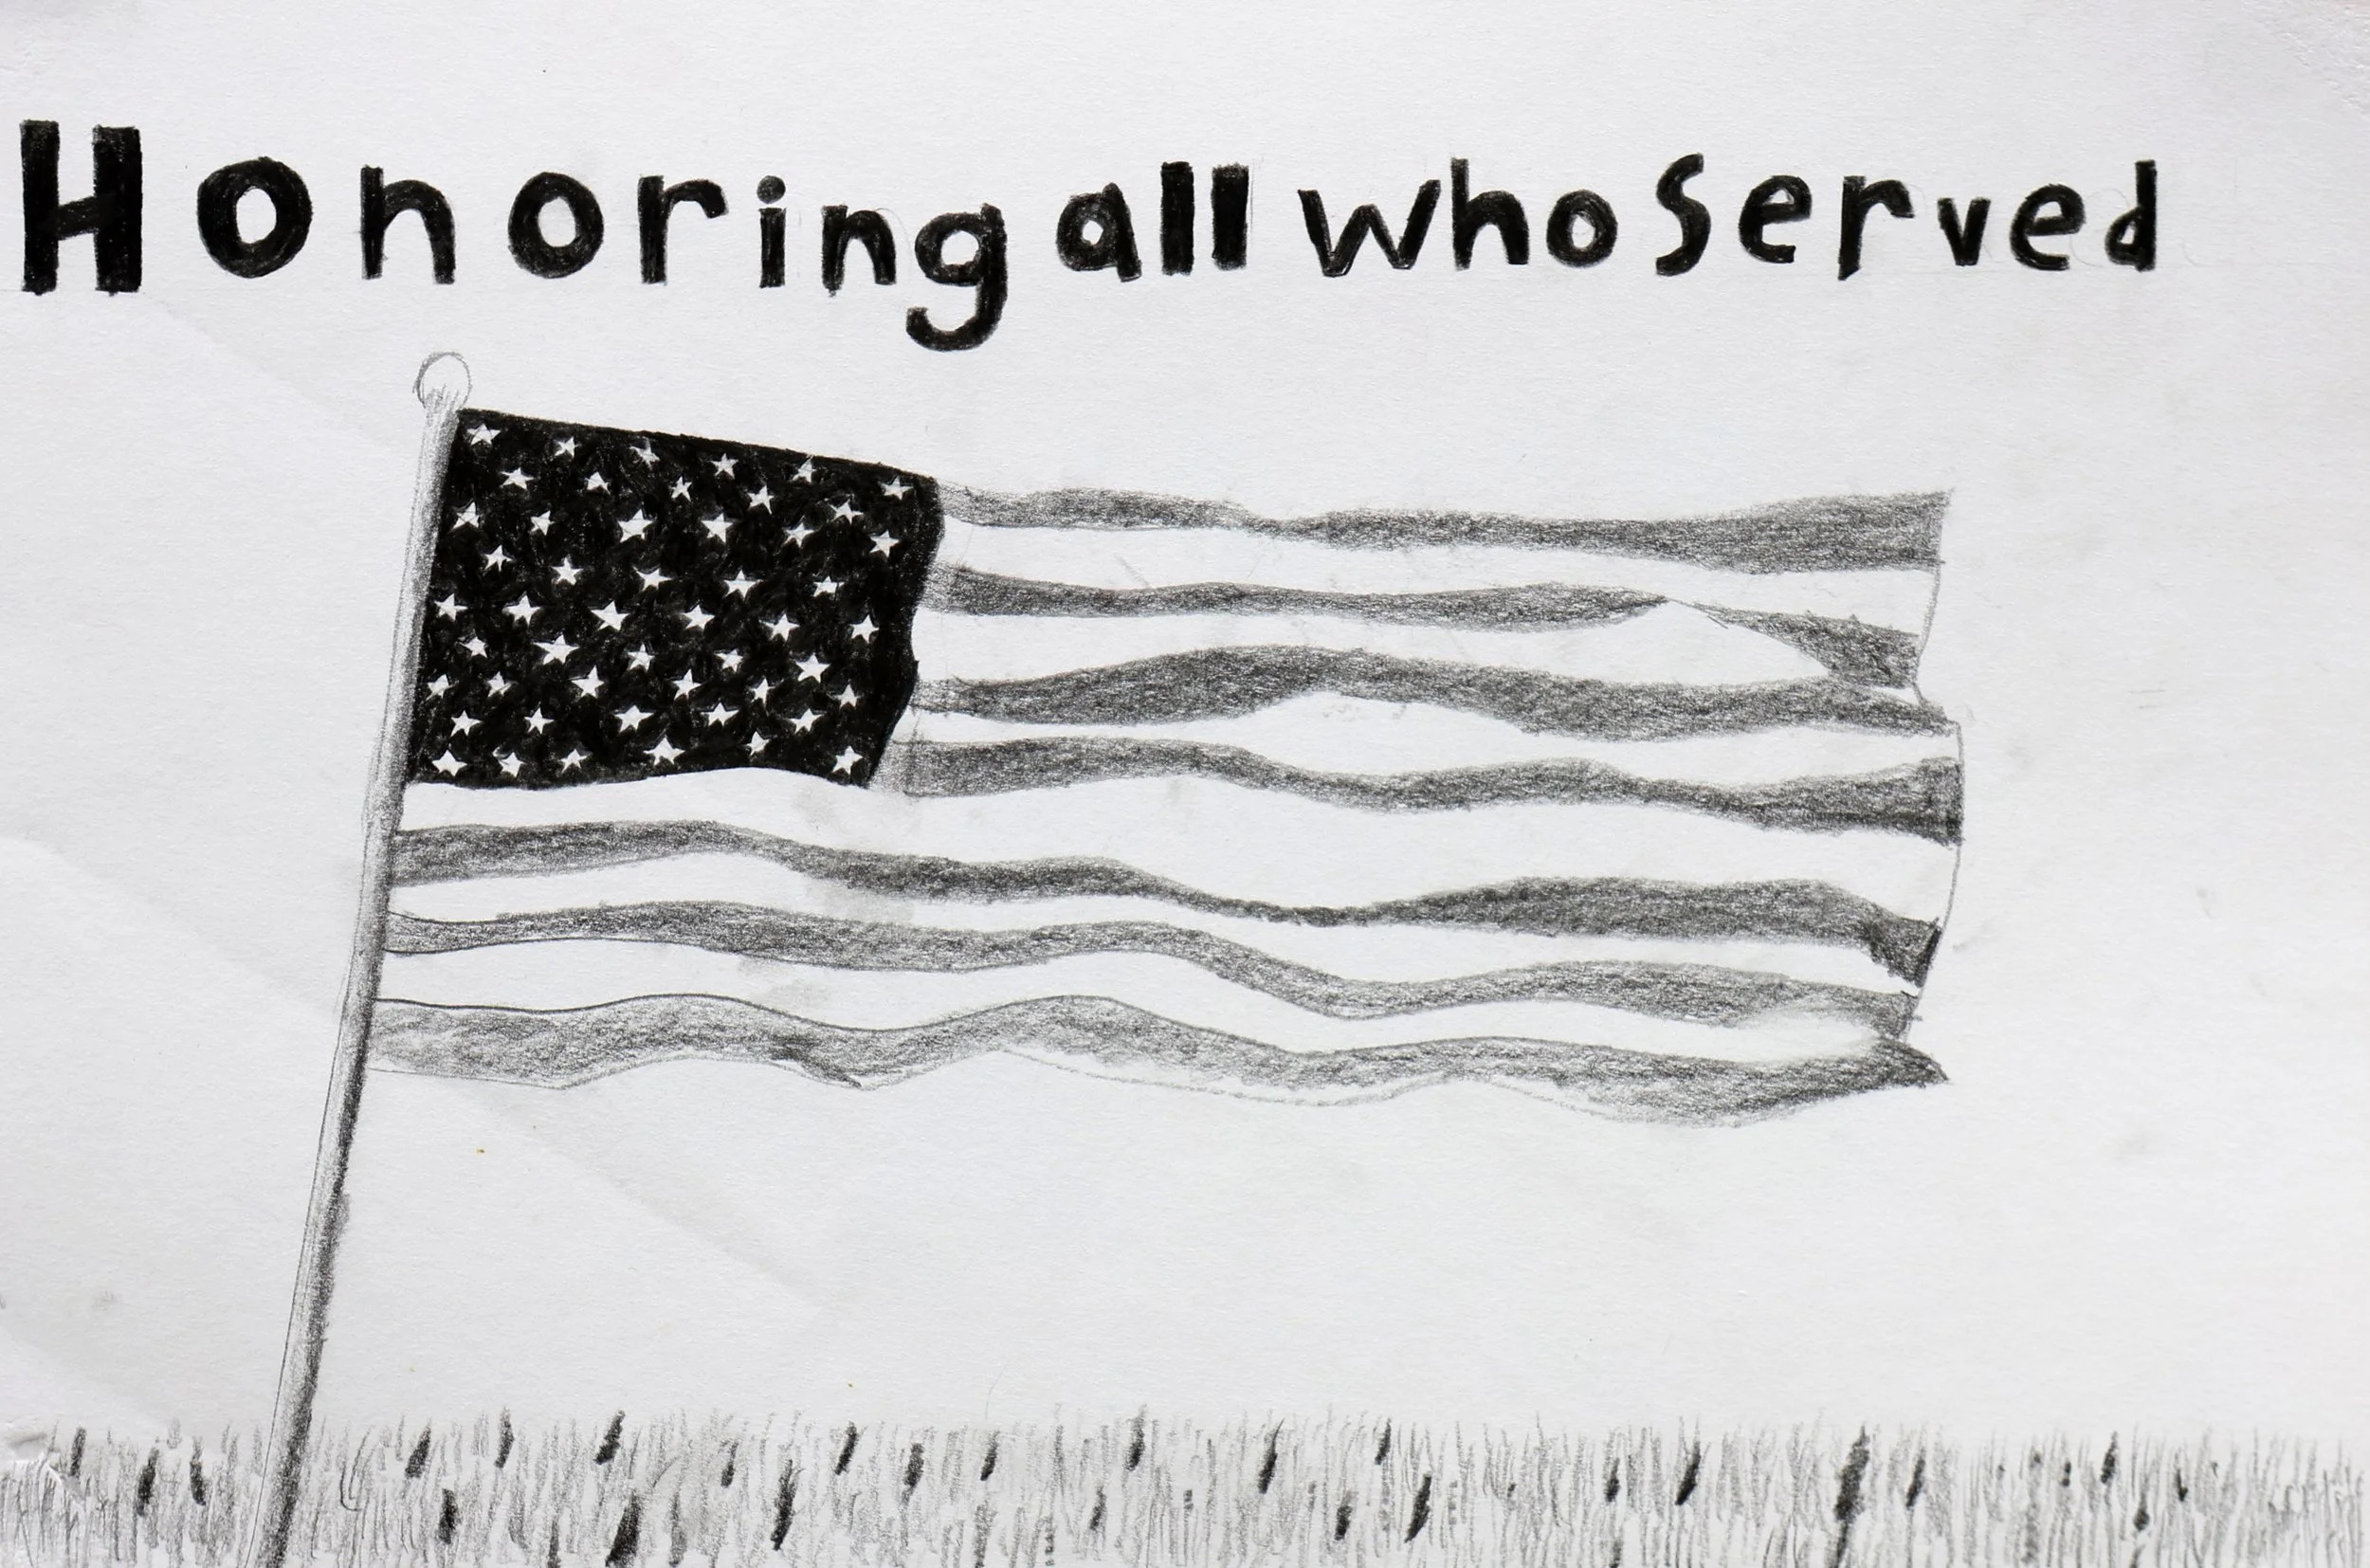 Honoring all who served